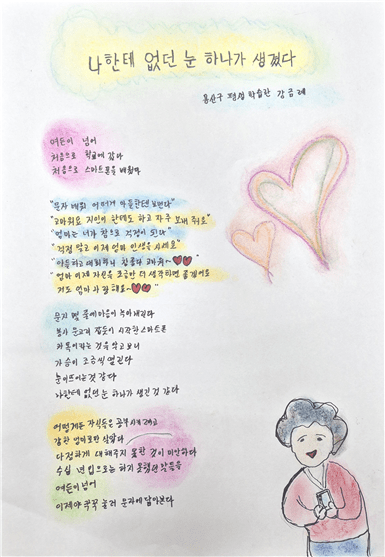 나한테 없던 눈 하나가 생겼다
용산구 평생학습관 강금례
여든이 넘어
처음으로 학교에 갔다
처음으로 스마트폰을 배웠다
"문자 배워 어머가 아들한테 보낸다"
"고마워요 지인이 한테도 하고 자주 보내 줘요"
"엄마는 너가 참으로 걱정이 된다"
"걱정 말고 이제 엄마 인생을 사세요"
"아들하고 대화하니 참 좋다 고마워~♥♥"
"엄마 이제 자신을 조금만 더 생각하면 좋겠어요
저도 엄마 사랑해요~♥♥"
문자 몇 줄에 마음이 녹아내린다
봉사 문고리 잡듯이 시작한 스마트폰
카톡이라는 것을 알고 보니
가슴이 조금씩 열린다
눈이 뜨이는 것 같다
나한테 없던 눈 하나가 생긴 것 같다
어떻게든 자식들은 공부시켜야 했고
강한 엄마로만 살았다
다정하게 대해주지 못한 것이 미안하다
수십 년 입으로는 하지 못했던 말을
여든이 넘어
이제야 꾹꾹 눌러 문자에 담아본다